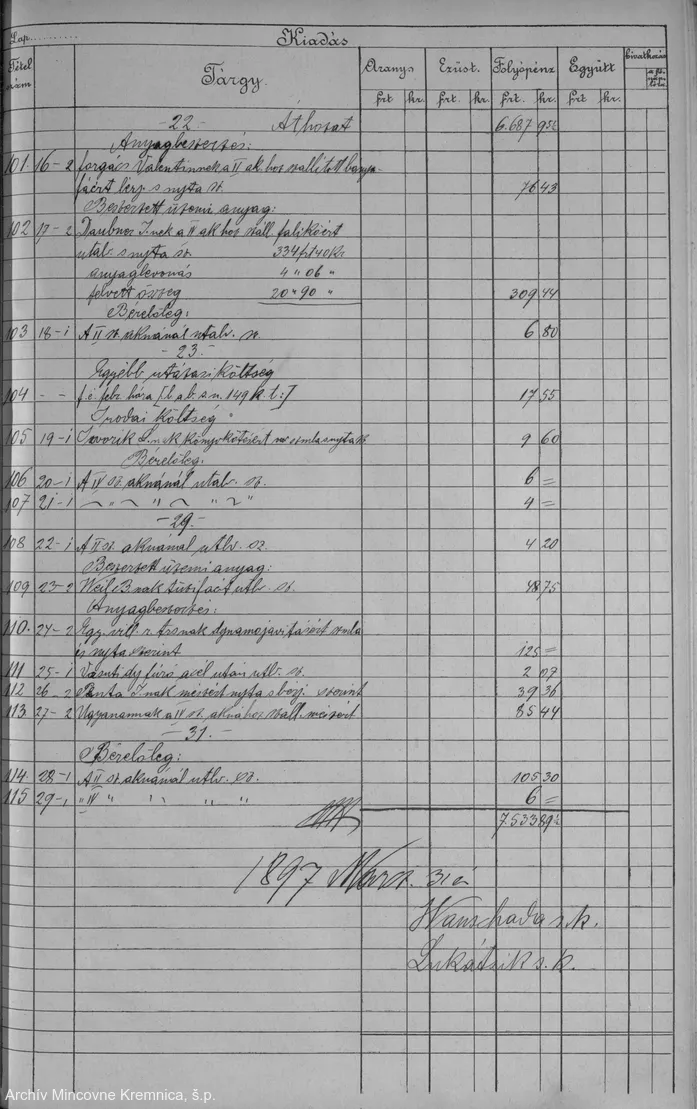 Lap
Kiadás
Tétel szám Tárgy. Arany Ezüst. Folyópénz Együtt hivatkozás
frt kr. frt. kr. frt. kr. frt kr.
- 22. - Áthozat 6.687 95½
Anyagbeszerzés:
101 16-2 forgács Valentinnek a II ak. hoz szállított bánya-
fáért bérj. s nyta sz. 76 43
Beszerzett üzemi anyag:
102 17-2 Daubner I.nek a IV ak hoz száll. falikőért
utalv. s nyta sz. 334 frt 40 kr
anyaglevonás 4 " 06 "
felvett összeg 20 " 90 " 309 44
Bérelőleg:
103 18-1 A II sz. aknánál utalv. sz. 6 80
- 23. -
Egyébb utazási költség
104 - - f. é. febr. hóra 17 55
Irodai költség
105 19-1 könyvkötésért 9 60
Bérelőleg.
106 20-1 A IV sz. aknánál utalv. sz. 6 =
107 21-1 " " " " " 4 =
- 29. -
108 22-1 A II sz. aknánál utlv. sz. 4 20
Beszerzett üzemi anyag:
109 23-2 Weil B.nak tüzifáért utlv. sz. 48 75
Anyagbeszerzés:
110. 24-2 Egy. vill. r. trsnak dynamojavításért számla
és nyta szerint 125 =
111 25-1 fúró acél után utlv. sz. 2 07
112 26-2 I.nak mészért nyta s bérj. szerint 39 36
113 27-2 Ugyanannak a IV sz. aknához száll. mészért 85 44
- 31. -
Bérelőleg:
114. 28-1 A II sz. aknánál utlv. sz. 105 30
115 29-1 " IV " " " " 6 =
7.533 89½
1897 Márcz. 31 én
Wanschada s.k.
Lukátsik s.k.
Archív Mincovne Kremnica, š.p.